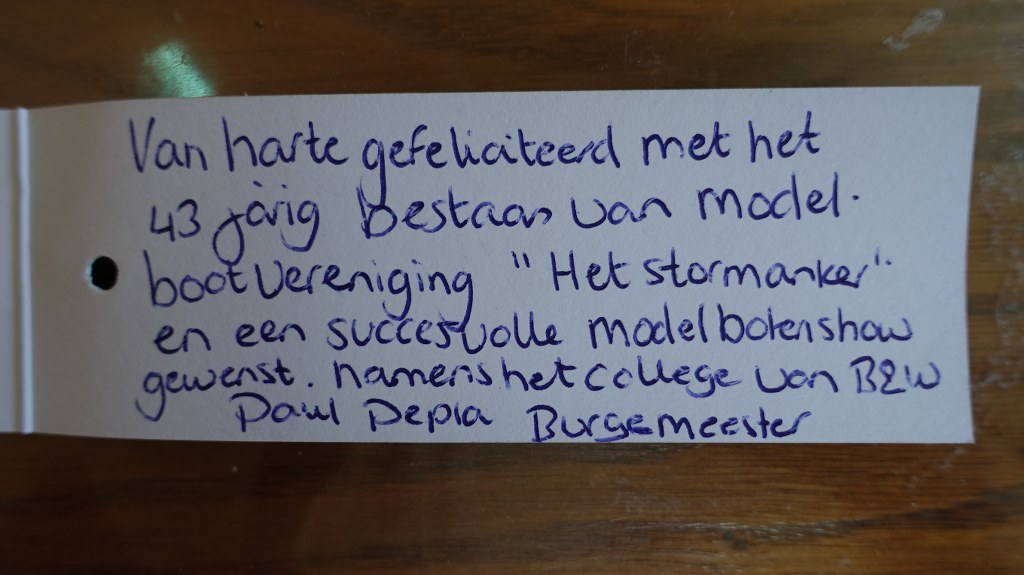 Van harte gefeliciteerd met het
43 jarig bestaan van model.
bootvereniging "Het stormanker"
en een succesvolle modelbotenshow
gewenst. namens het college van B&W
Paul Depla Burgemeester